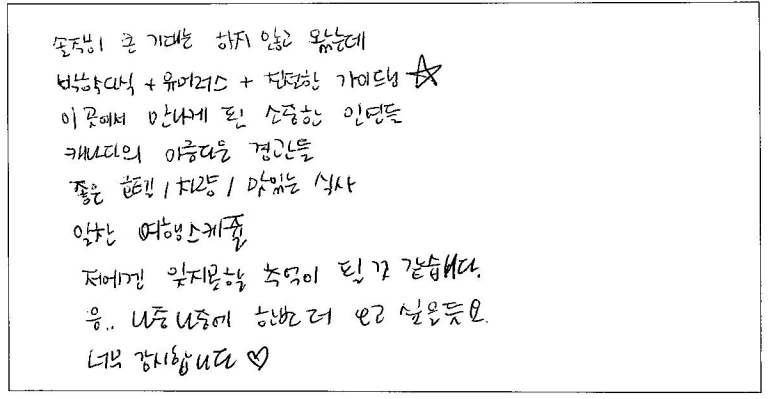 솔직히 큰 기대는 하지 않고 왔는데
박학다식 + 유머러스 + 친절한 가이드님 ☆
이 곳에서 만나게 된 소중한 인연들
캐나다의 아름다운 경관들
좋은 호텔 / 차량 / 맛있는 식사
알찬 여행스케쥴
저에겐 잊지못할 추억이 될 것 같습니다.
음.. 나중 나중에 한번 더 오고 싶을듯요.
너무 감사합니다 ♡